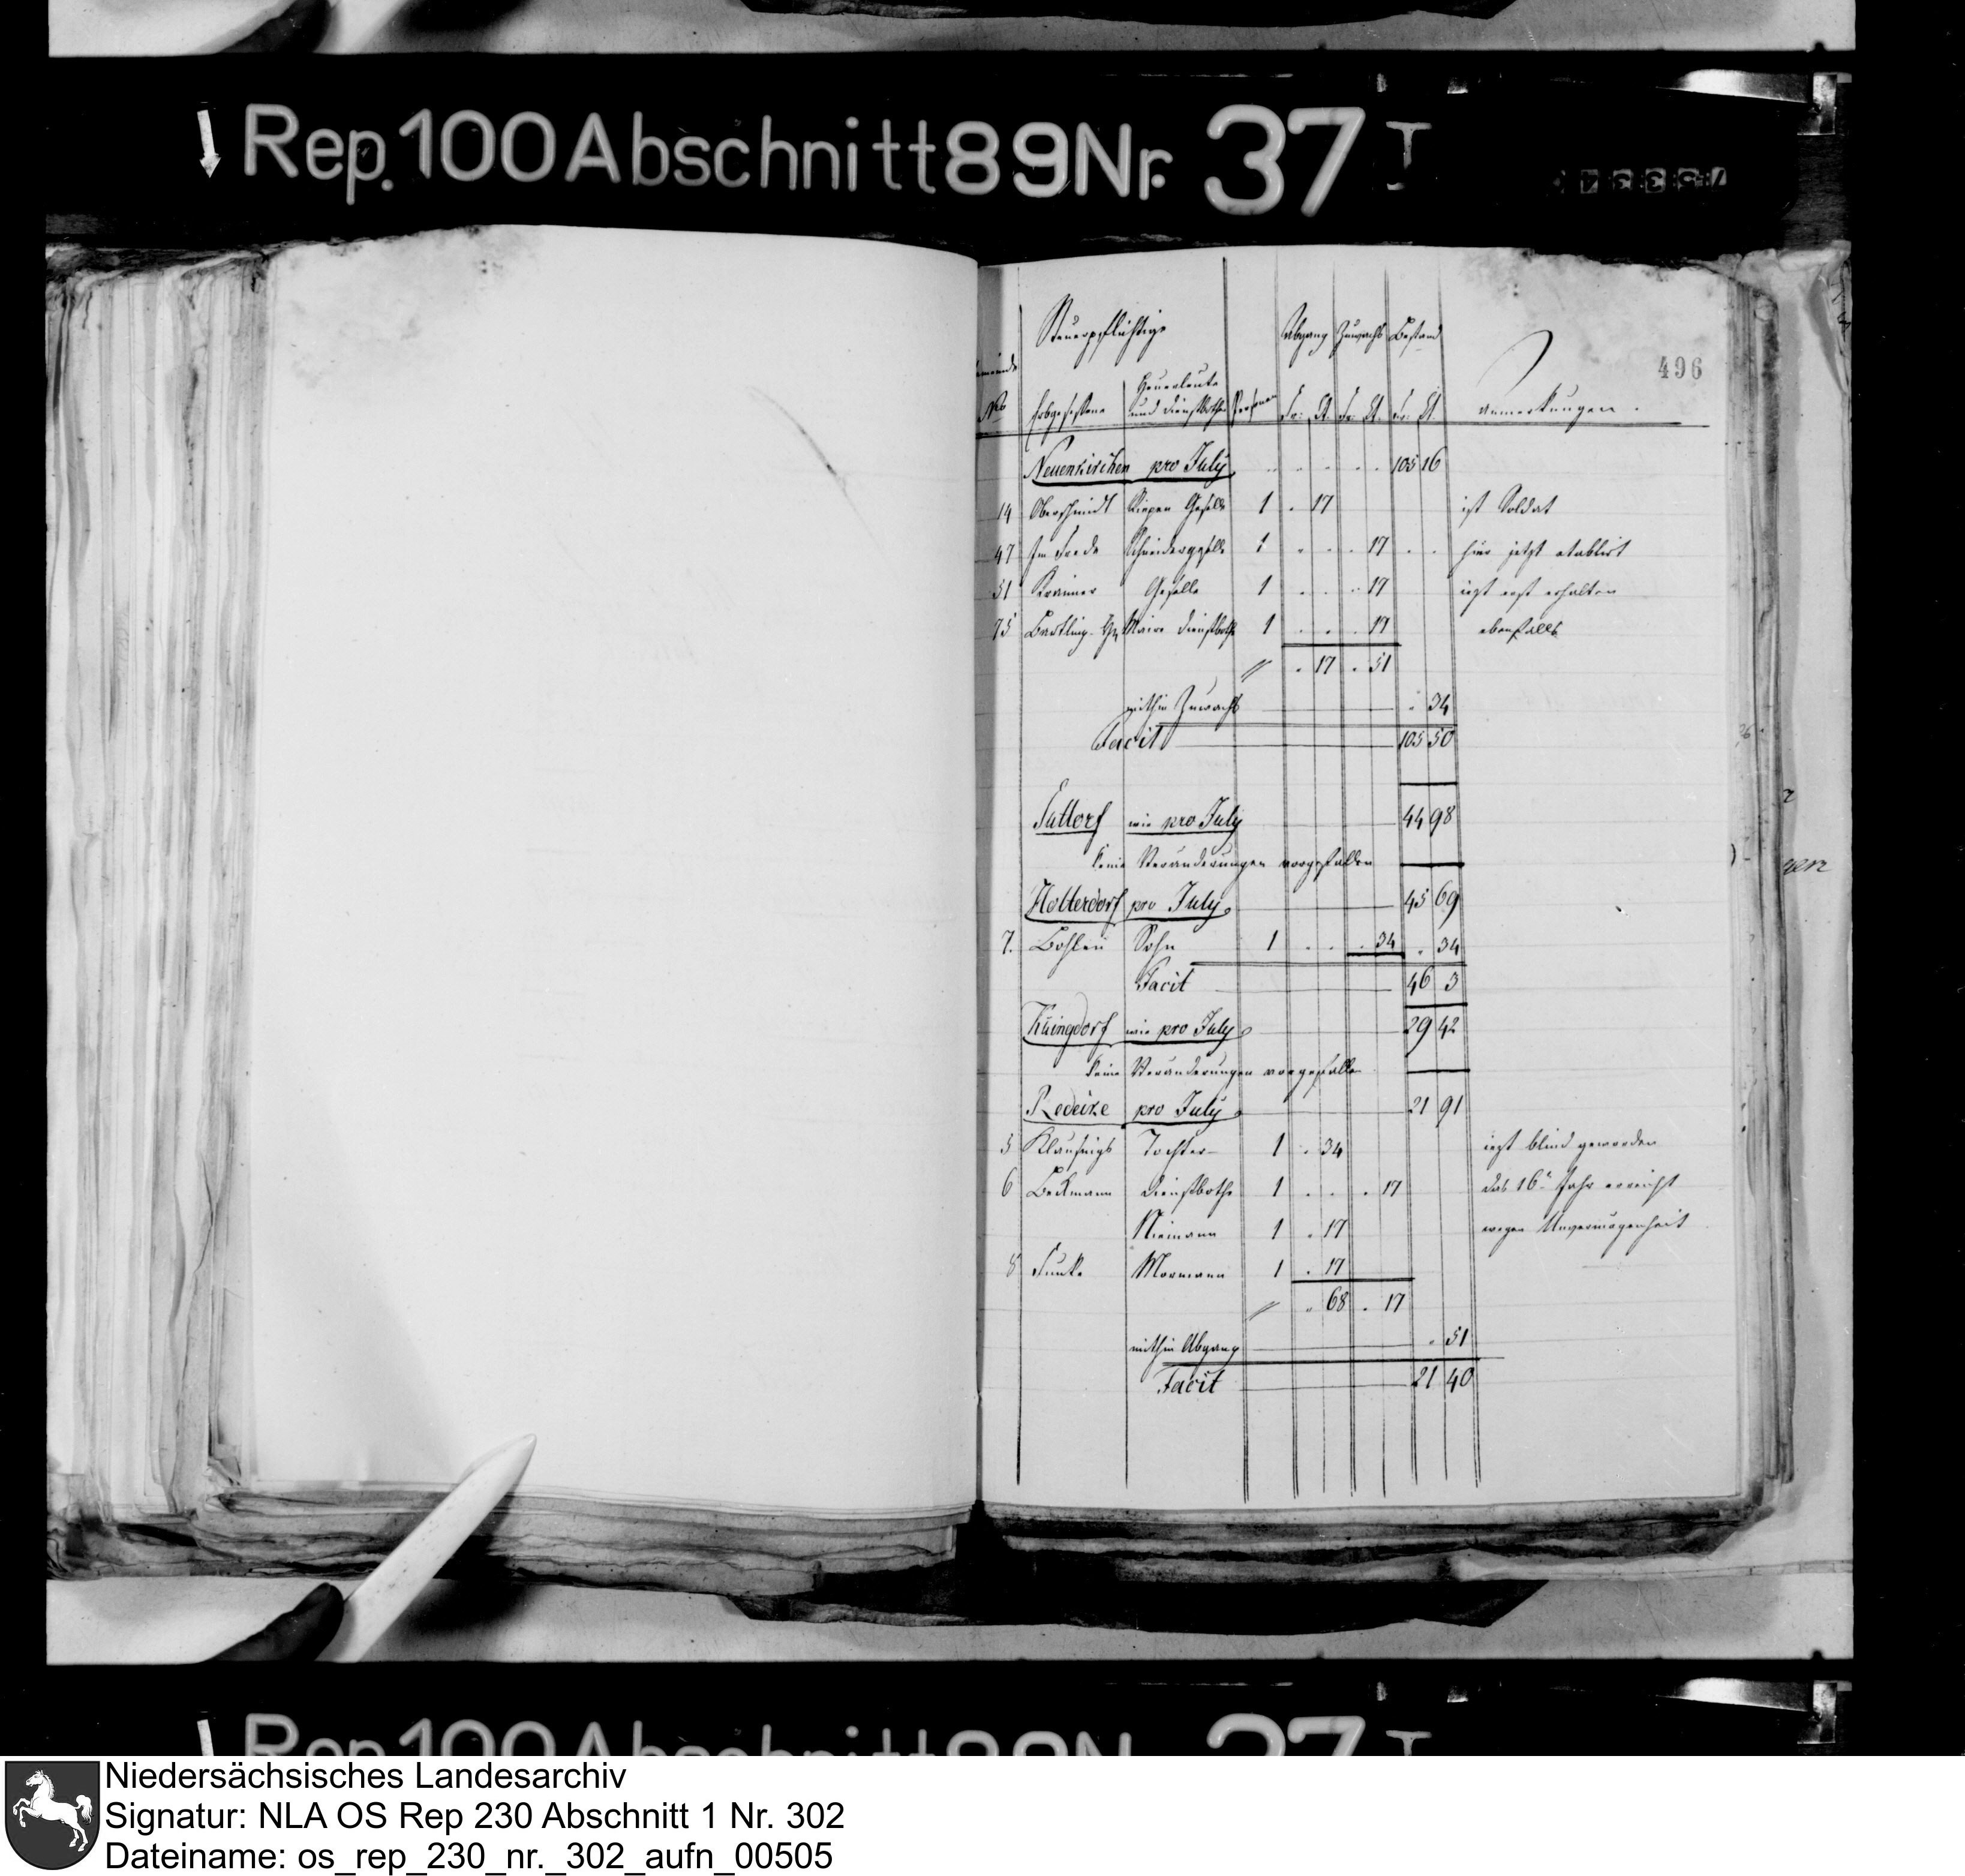 Rep. 100 Abschnitt 89 Nr. 37 I
496
Steuerpflichtige Abgang Zuwachs Bestand
No Erbgesessene Heuerleute und Dienstbothen Personen Fr: Ct. Fr: Ct. Fr: Ct. Anmerkungen.
Neuenkirchen pro July 105 16
14 Oberschmidt Geselle 1 . 17 ist Soldat
47 Im Frede Schneidergeselle 1 . . . 17 . . hier jetzt etablirt
51 Kramer Geselle 1 . . . 17 jezt erst erhalten
75 Bartling Maire Dienstbothe 1 . . . 17 ebenfalls
. 17 . 51
mithin Zuwachs . 34
Facit 105 50
Suttorf wie pro July 44 98
keine Veränderungen vorgefallen
Holterdorf pro July 45 69
7. Bohlen Sohn 1 . . . 34 . 34
Facit 46 3
Küingdorf wie pro July 29 42
keine Veränderungen vorgefallen
Redecke pro July 21 91
5 Klausings Tochter 1 . 34 jezt blind geworden
6 Beckmann Dienstbothe 1 . . . 17 das 16te Jahr erreicht
Niemann 1 . 17 wegen Unvermögenheit
8 Funke Mormann 1 . 17
. 68 . 17
mithin Abgang . 51
Facit 21 40
Rep. 100 Abschnitt 89 Nr. 37 I
Niedersächsisches Landesarchiv
Signatur: NLA OS Rep 230 Abschnitt 1 Nr. 302
Dateiname: os_rep_230_nr._302_aufn_00505